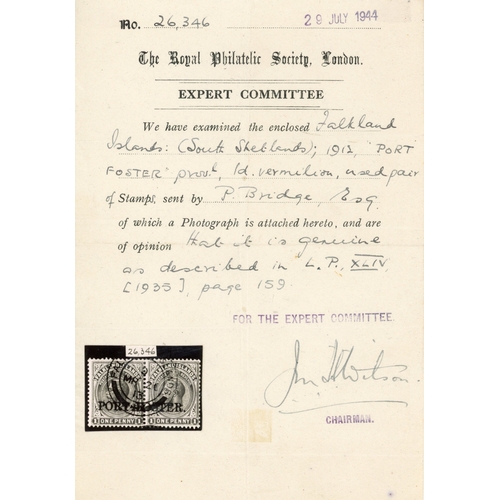 No. 26,346 29 JULY 1944
The Royal Philatelic Society, London.
EXPERT COMMITTEE
We have examined the enclosed Falkland
Islands: (South Shetlands); 1912, "PORT
FOSTER" provl, 1d. vermilion, used pair
of Stamps, sent by P. Bridge, Esq.
of which a Photograph is attached hereto, and are
of opinion that it is genuine
as described in L.P., XLIV,
[1935], page 159.
FOR THE EXPERT COMMITTEE.
26,346
PORT FOSTER.
1 ONE PENNY 1 1 ONE PENNY 1
CHAIRMAN.